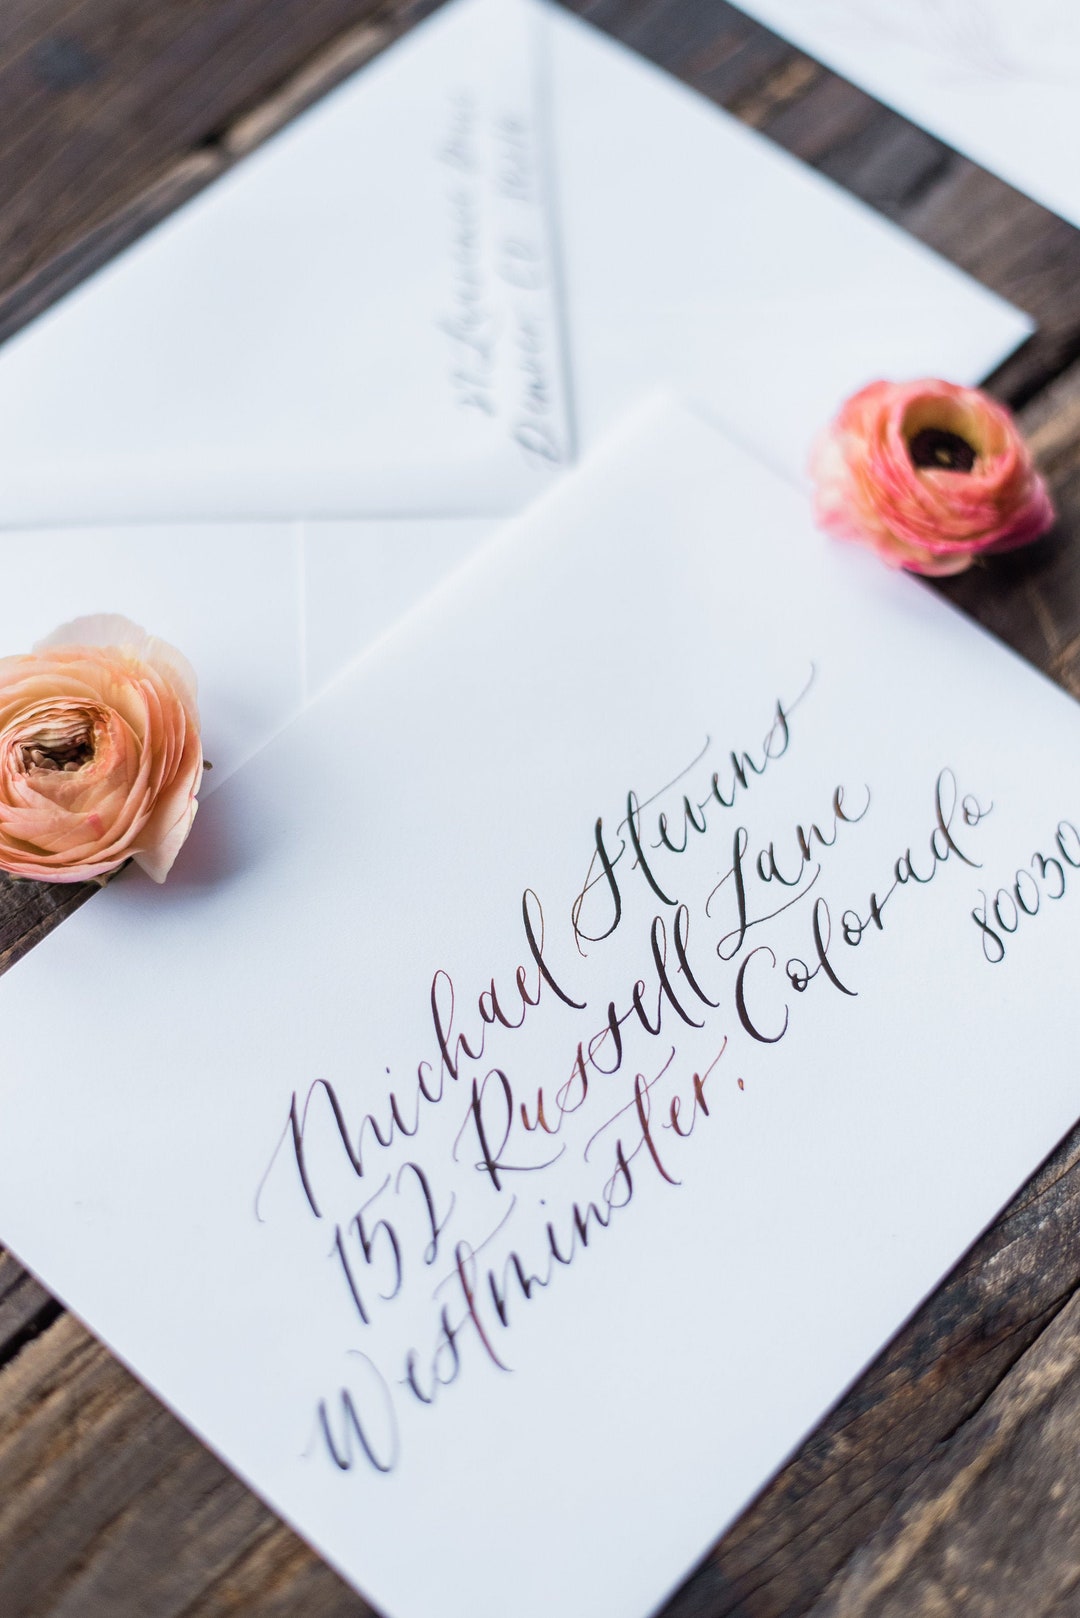 Michael Stevens
152 Russell Lane
Westminster. Colorado
80030
Denver CO